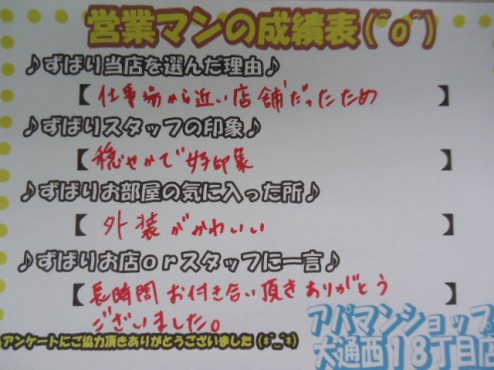 営業マンの成績表(^o^)
♪ずばり当店を選んだ理由♪
【仕事場から近い店舗だったため】
♪ずばりスタッフの印象♪
【穏やかで好印象】
♪ずばりお部屋の気に入った所♪
【外装がかわいい】
♪ずばりお店orスタッフに一言♪
【長時間お付き合い頂きありがとう
ございました。】
アンケートにご協力頂きありがとうございました(*^_^*)
アパマンショップ
大通西18丁目店